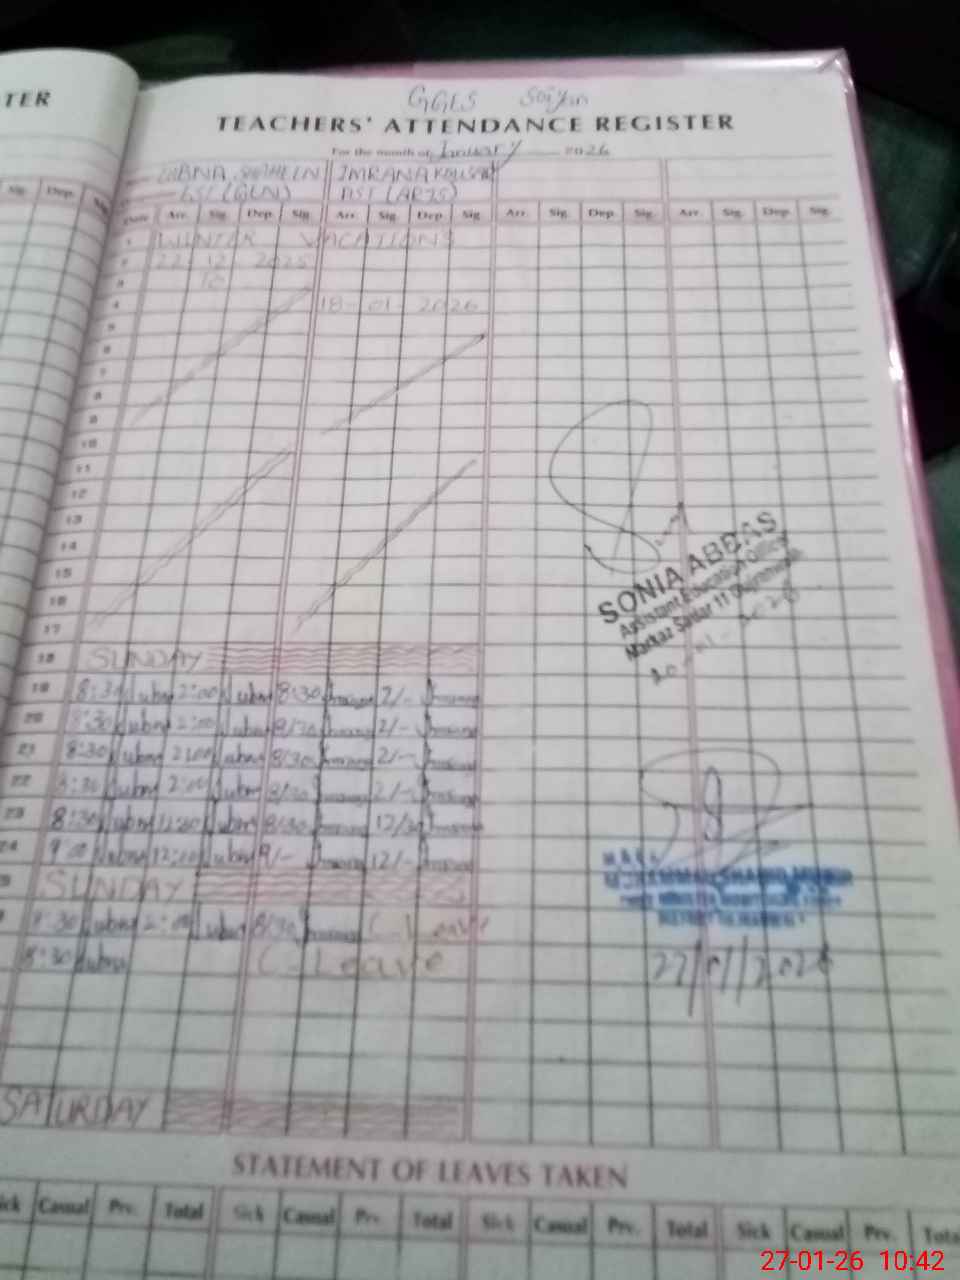 TER
GGES Saiyan
TEACHERS' ATTENDANCE REGISTER
For the month of January 2026
LUBNA IMRANA KOUSAR
EST (GEN) AST (ARTS)
Sig. Dep. Sig
Date Arr. Sig. Dep. Sig. Arr. Sig. Dep. Sig. Arr. Sig. Dep. Sig. Arr. Sig. Dep. Sig.
1 WINTER VACATIONS
2 22 12 2025
3 To
4 18-01-2026
5
6
7
8
9
10
11
12
13
14
15
16
17
SONIA ABBAS
Assistant Education Officer
Markaz Saddar 11 Gujranwala
18 SUNDAY
19 8:30 Lubna 2:00 Lubna 8/30 Imrana 2/- Imrana
20 8:30 Lubna 2:00 Lubna 8/30 Imrana 2/- Imrana
21 8:30 Lubna 2:00 Lubna 8/30 Imrana 2/- Imrana
22 8:30 Lubna 2:00 Lubna 8/30 Imrana 2/- Imrana
23 8:30 Lubna 12:30 Lubna 8/30 Imrana 12/30 Imrana
24 9:00 Lubna 12:00 Lubna 9/- Imrana 12/- Imrana
SUNDAY
8:30 Lubna 2:00 Lubna 8/30 Imrana C-Leave
8:30 Lubna C-Leave
27/01/2026
SATURDAY
STATEMENT OF LEAVES TAKEN
Sick Casual Prv. Total Sick Casual Prv. Total Sick Casual Prv. Total Sick Casual Prv. Total
27-01-26 10:42